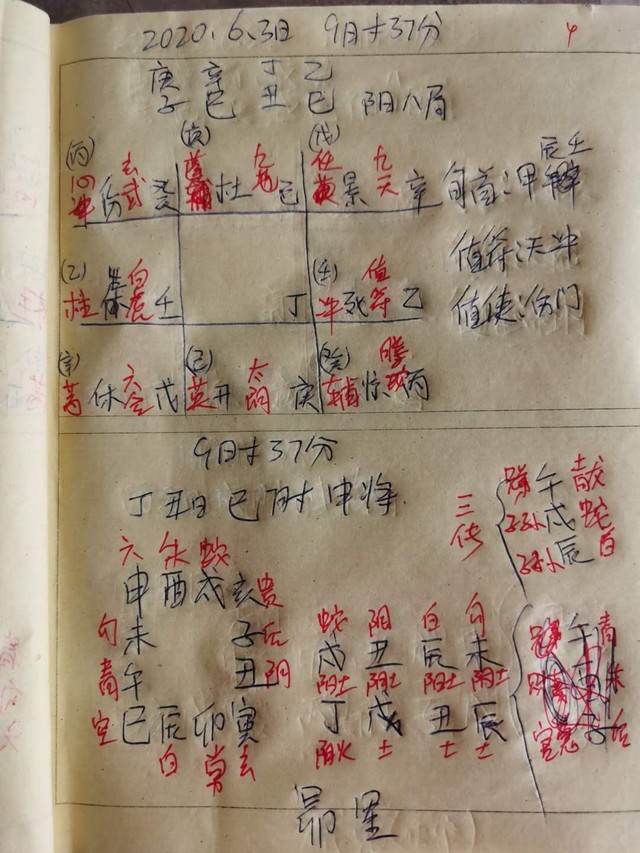 2020.6.3日 9时37分
4
庚 辛 丁 乙
子 巳 丑 巳 阴八局
(丙) (庚) (戊)
玄武 九地 任 九天 辰壬
冲 伤 癸 辅 杜 己 景 辛 旬首:甲
值符:天冲
(乙) (壬) 值符
柱 白虎 壬 丁 冲 死 乙 值使:伤门
(辛) (己) (癸) 螣蛇
芮 休 六合 戊 英 开 太阴 庚 辅 惊 丙
9时37分
丁丑日 巳时 申将
三传
午 青龙
子孙 戌 蛇
子孙 辰 白
六 朱 蛇
申 酉 戌 亥 贵
勾 未 子 后
青 午 丑 阴
空 巳 辰 卯 寅
白 常 玄
蛇 阴 白 勾
戌 丑 辰 未
阳土 阴土 阳土 阴土
丁 戌 丑 辰
阳火 土 土 土
午 青
子 后
昴星